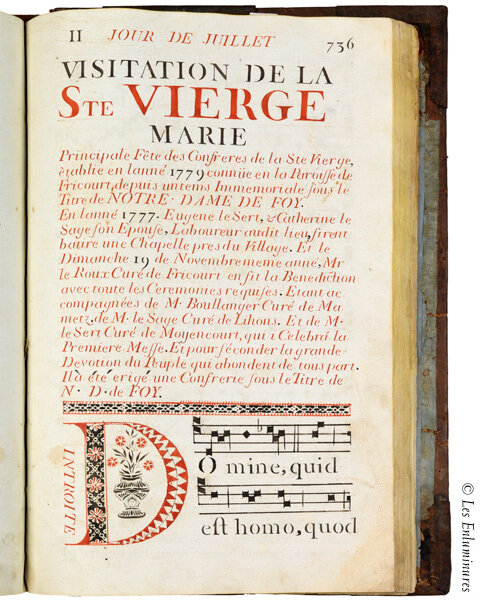 II JOUR DE JUILLET 736
VISITATION DE LA
STE VIERGE
MARIE
Principale Fête des Confreres de la Ste Vierge,
établie en lanné 1779 connüe en la Paroisse de
Fricourt, depuis untems Immemoriale sous le
Titre de NOTRE · DAME DE FOY.
En lanné 1777. Eugene le Sert, & Catherine le
Sage son Epouse, Laboureur audit lieu, firent
batire une Chapelle pres du Village. Et le
Dimanche 19 de Novembre meme anné, Mr
le Roux Curé de Fricourt en fit la Benediction
avec toute les Ceremonies requises. Etant ac
compagnées de M. Boullanger Curé de Ma
metz, de M. le Sage Curé de Lihons. Et de M.
le Sert Curé de Moyencourt, qui i Celebré la
Premiere Messe. Et pour séconder la grande
Devotion du Peuple qui abondent de tous part.
Il a été erigé une Confrerie sous le Titre de
N · D · de FOY.
INTROITE
DO mine, quid
est homo, quod
© Les Enluminures